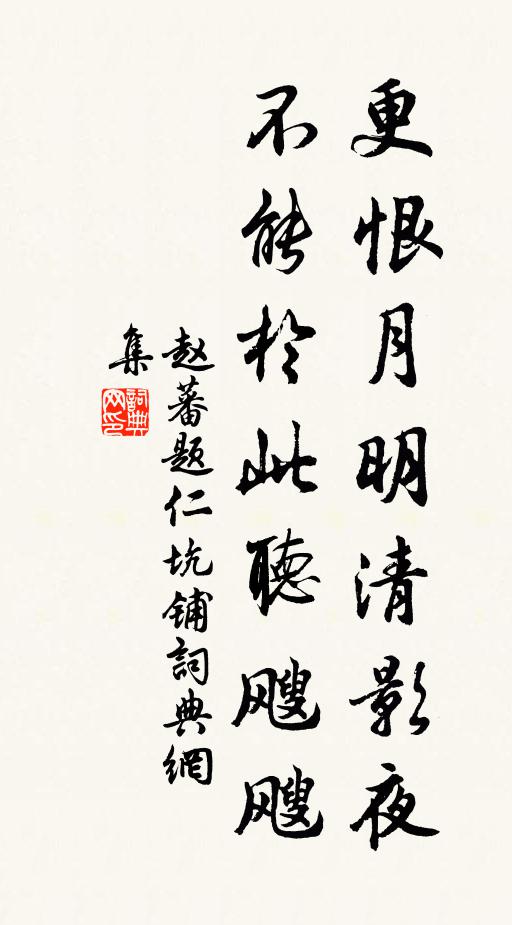 更恨月明清影夜
不能於此聽颼颼
赵蕃題仁坑铺詞典網
集
詞典
网印